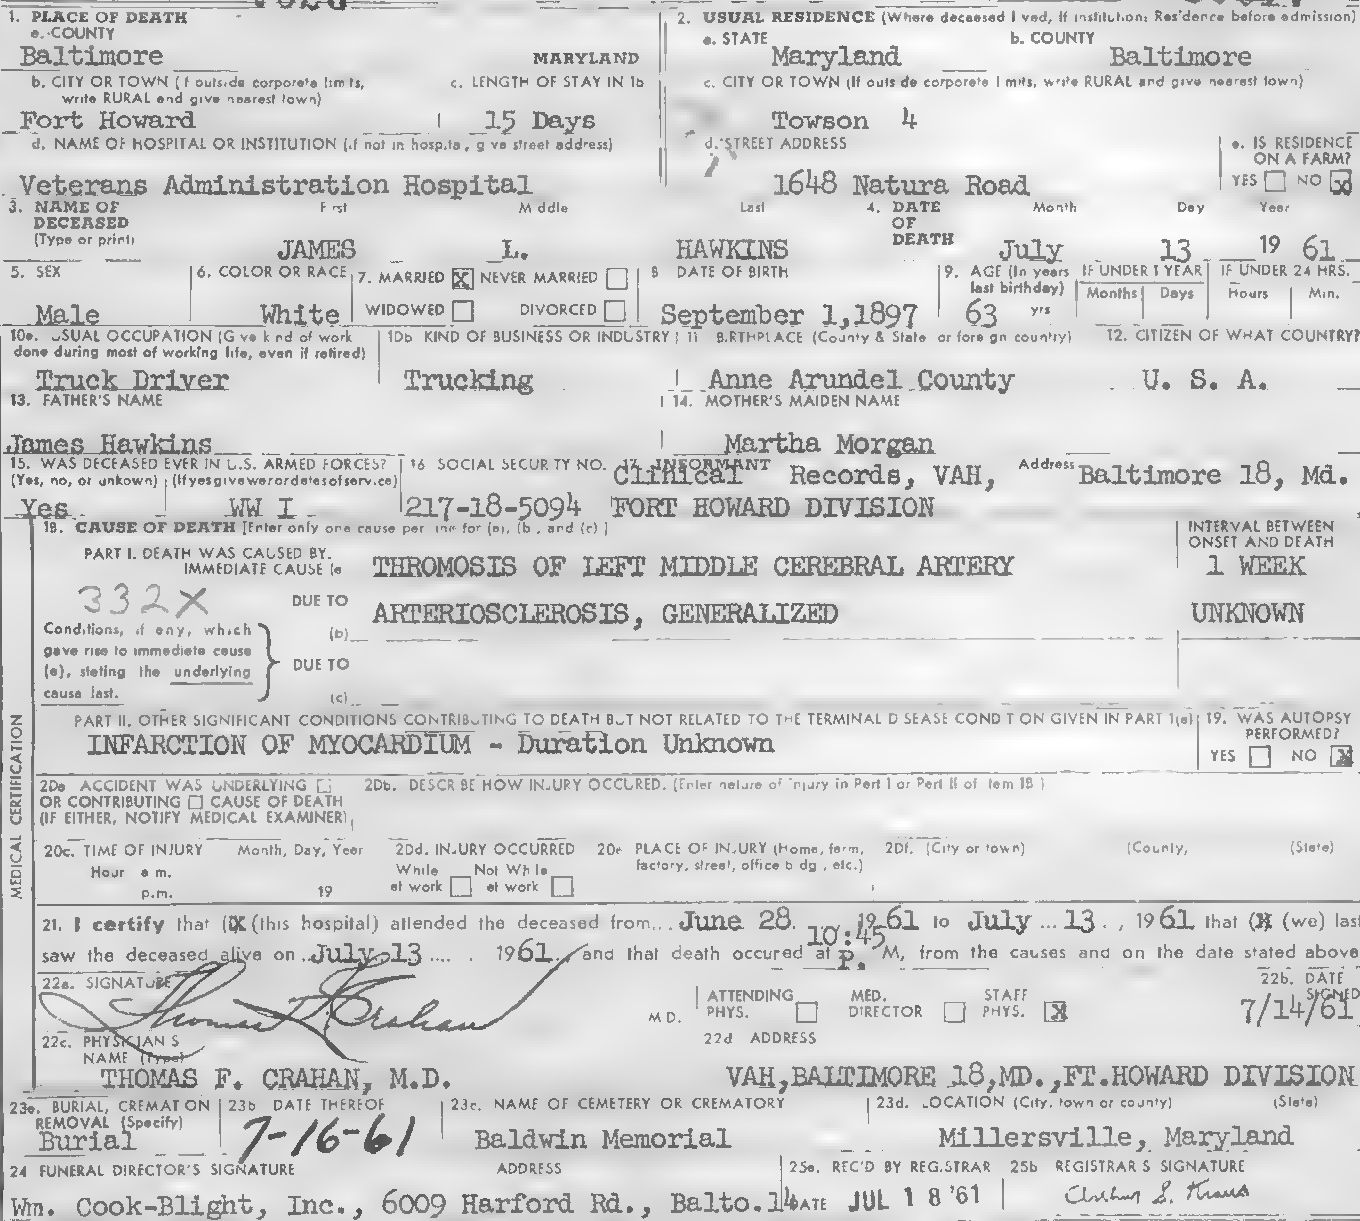 1. PLACE OF DEATH
a. COUNTY
Baltimore MARYLAND
b. CITY OR TOWN (If outside corporate limits, write RURAL and give nearest town)
Fort Howard
c. LENGTH OF STAY IN 1b
15 Days
d. NAME OF HOSPITAL OR INSTITUTION (if not in hospital, give street address)
Veterans Administration Hospital
2. USUAL RESIDENCE (Where deceased lived, If institution: Residence before admission)
a. STATE
Maryland
b. COUNTY
Baltimore
c. CITY OR TOWN (If outside corporate limits, write RURAL and give nearest town)
Towson 4
d. STREET ADDRESS
1648 Natura Road
e. IS RESIDENCE ON A FARM?
YES NO X
3. NAME OF DECEASED (Type or print)
First Middle Last
JAMES L. HAWKINS
4. DATE OF DEATH
Month Day Year
July 13 19 61
5. SEX
Male
6. COLOR OR RACE
White
7. MARRIED X NEVER MARRIED
WIDOWED DIVORCED
8 DATE OF BIRTH
September 1,1897
9. AGE (In years last birthday)
63 yrs
IF UNDER 1 YEAR
Months Days
IF UNDER 24 HRS.
Hours Min.
10a. USUAL OCCUPATION (Give kind of work done during most of working life, even if retired)
Truck Driver
10b KIND OF BUSINESS OR INDUSTRY
Trucking
11 BIRTHPLACE (County & State or foreign country)
Anne Arundel County
12. CITIZEN OF WHAT COUNTRY?
U. S. A.
13. FATHER'S NAME
James Hawkins
14. MOTHER'S MAIDEN NAME
Martha Morgan
15. WAS DECEASED EVER IN U.S. ARMED FORCES?
(Yes, no, or unkown) (If yes give war or dates of service)
Yes WW I
16 SOCIAL SECURITY NO.
217-18-5094
17. INFORMANT Address
Clinical Records, VAH, Baltimore 18, Md.
FORT HOWARD DIVISION
18. CAUSE OF DEATH [Enter only one cause per line for (a), (b), and (c)]
INTERVAL BETWEEN ONSET AND DEATH
PART I. DEATH WAS CAUSED BY.
IMMEDIATE CAUSE (a THROMOSIS OF LEFT MIDDLE CEREBRAL ARTERY 1 WEEK
332X
DUE TO (b) ARTERIOSCLEROSIS, GENERALIZED UNKNOWN
Conditions, if any, which gave rise to immediate cause (a), stating the underlying cause last.
DUE TO
(c)
MEDICAL CERTIFICATION
PART II. OTHER SIGNIFICANT CONDITIONS CONTRIBUTING TO DEATH BUT NOT RELATED TO THE TERMINAL DISEASE CONDITION GIVEN IN PART 1(a)
INFARCTION OF MYOCARDIUM - Duration Unknown
19. WAS AUTOPSY PERFORMED?
YES NO X
20a ACCIDENT WAS UNDERLYING
OR CONTRIBUTING CAUSE OF DEATH
(IF EITHER, NOTIFY MEDICAL EXAMINER)
20b. DESCRIBE HOW INJURY OCCURED. (Enter nature of injury in Part I or Part II of item 18)
20c. TIME OF INJURY Month, Day, Year
Hour a m.
p.m. 19
20d. INJURY OCCURRED
While at work Not While at work
20e PLACE OF INJURY (Home, farm, factory, street, office bldg., etc.)
20f. (City or town) (County, (State)
21. I certify that (X (this hospital) attended the deceased from June 28. 1961 to July 13, 1961 that (X (we) last
saw the deceased alive on July 13 1961. and that death occured at 10:45 P. M, from the causes and on the date stated above
22a. SIGNATURE
Thomas F. Crahan M D.
ATTENDING PHYS. MED. DIRECTOR STAFF PHYS. X
22b. DATE SIGNED
7/14/61
22c. PHYSICIAN'S NAME (Type)
THOMAS F. CRAHAN, M.D.
22d ADDRESS
VAH,BALTIMORE 18,MD.,FT.HOWARD DIVISION
23a. BURIAL, CREMATION REMOVAL (Specify)
Burial
23b DATE THEREOF
7-16-61
23c. NAME OF CEMETERY OR CREMATORY
Baldwin Memorial
23d. LOCATION (City, town or county) (State)
Millersville, Maryland
24 FUNERAL DIRECTOR'S SIGNATURE ADDRESS
Wm. Cook-Blight, Inc., 6009 Harford Rd., Balto.14
25a. REC'D BY REGISTRAR
DATE JUL 18 '61
25b REGISTRAR'S SIGNATURE
Arthur S. Kraus